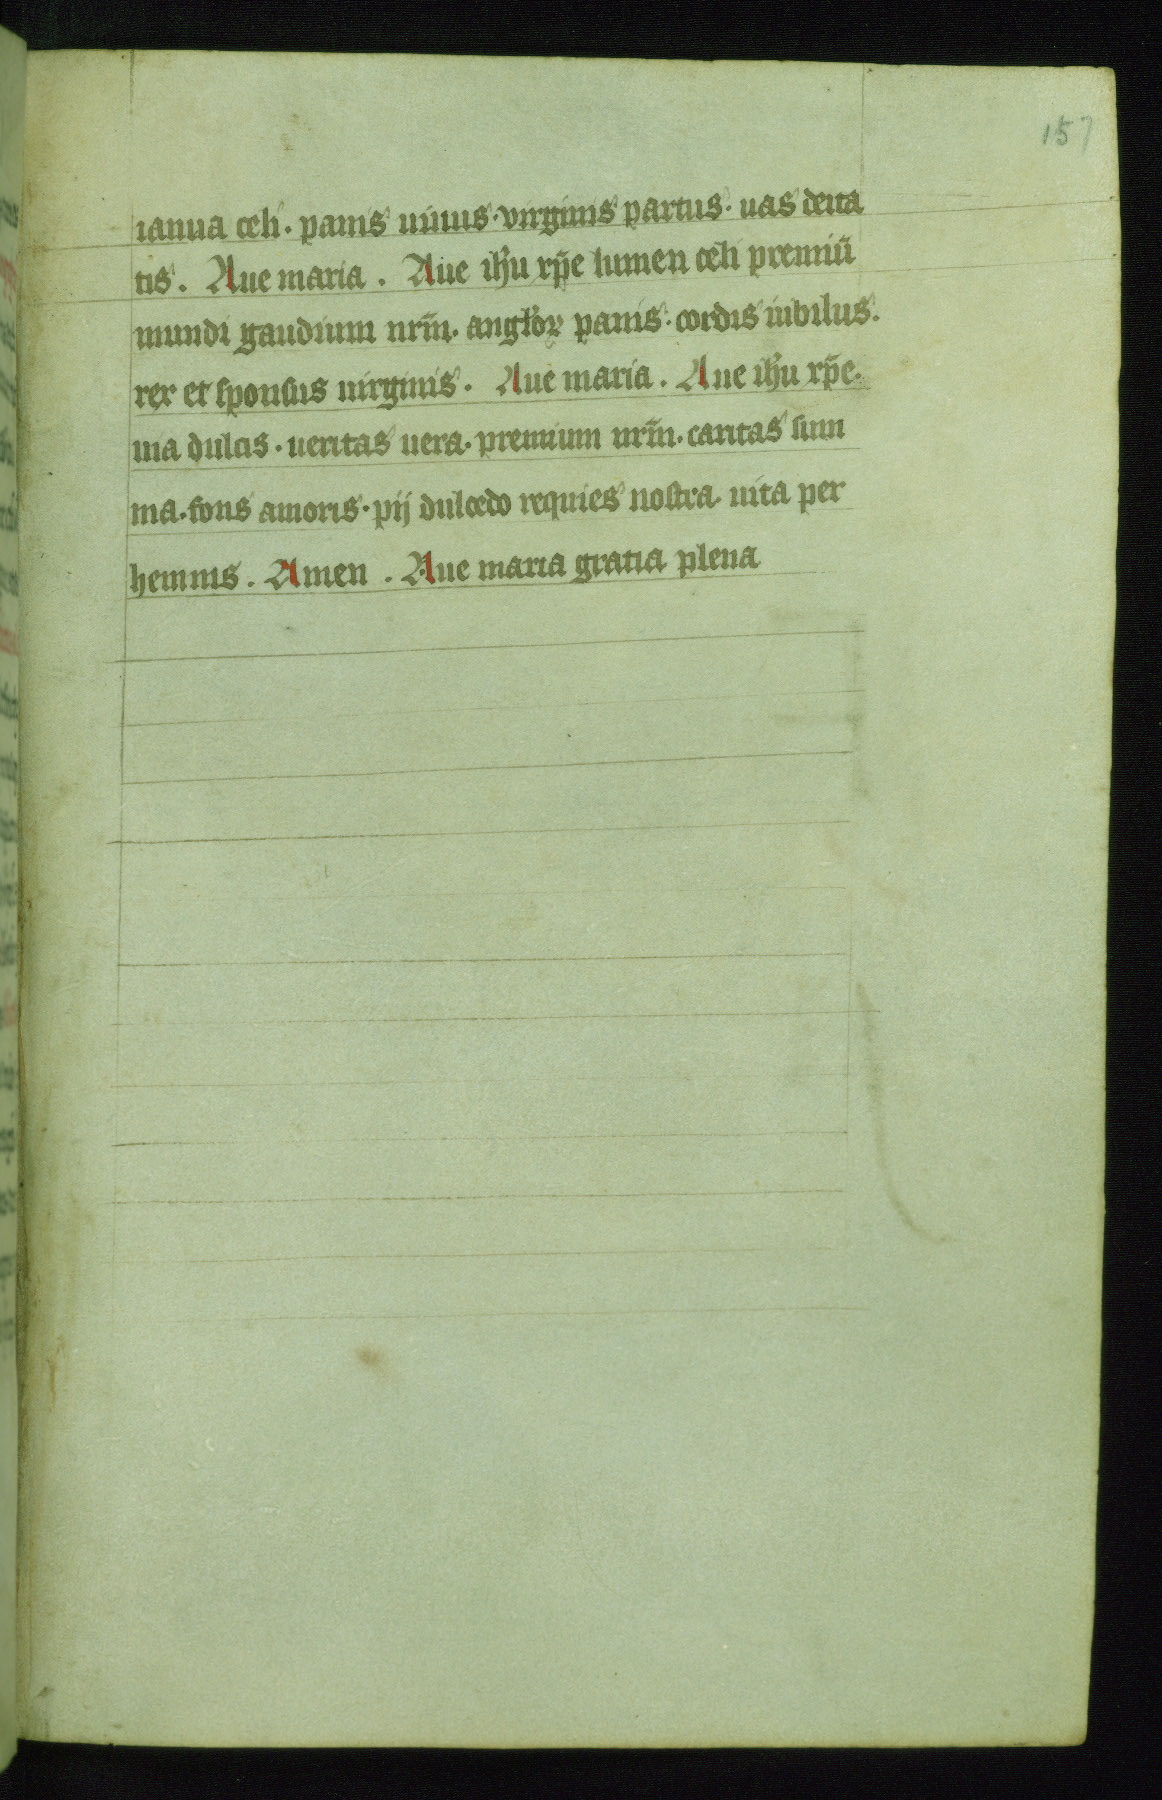 157
ianua celi. panis uiuus. virginis partus. uas deita
tis. Aue maria. Aue ihu xp̄e lumen celi premiū
mundi gaudium nrm̄. anglꝛoꝝ panis. cordis iubilus.
rex et sponsus uirginis. Aue maria. Aue ihu xp̄e.
uia dulcis. ueritas uera. premium nrm̄. caritas sum
ma. fons amoris. pij dulcedo requies nostra. uita per
hennis. Amen. Aue maria gratia plena